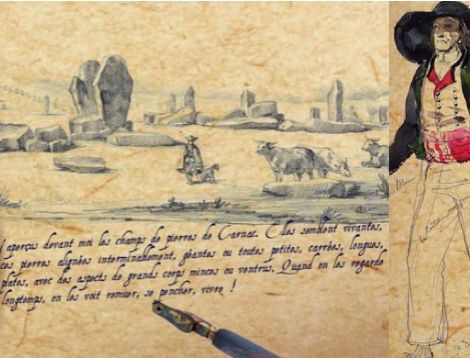 j'aperçus devant moi les champs de pierres de Carnac. Elles semblent vivantes,
ces pierres alignées interminablement, géantes ou toutes petites, carrées, longues,
plates, avec des aspects de grands corps minces ou ventrus. Quand on les regarde
longtemps, on les voit remuer, se pencher, vivre !